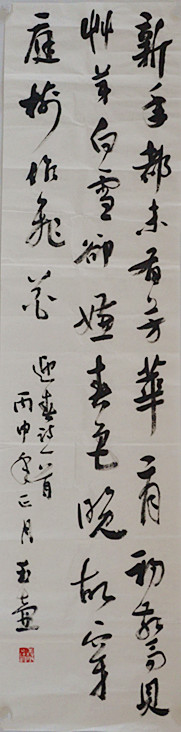 新年都未有芳華二月初驚見
艸芽白雪卻嫌春色晚故穿
庭樹作飛花
迎春詩一首
丙申年正月